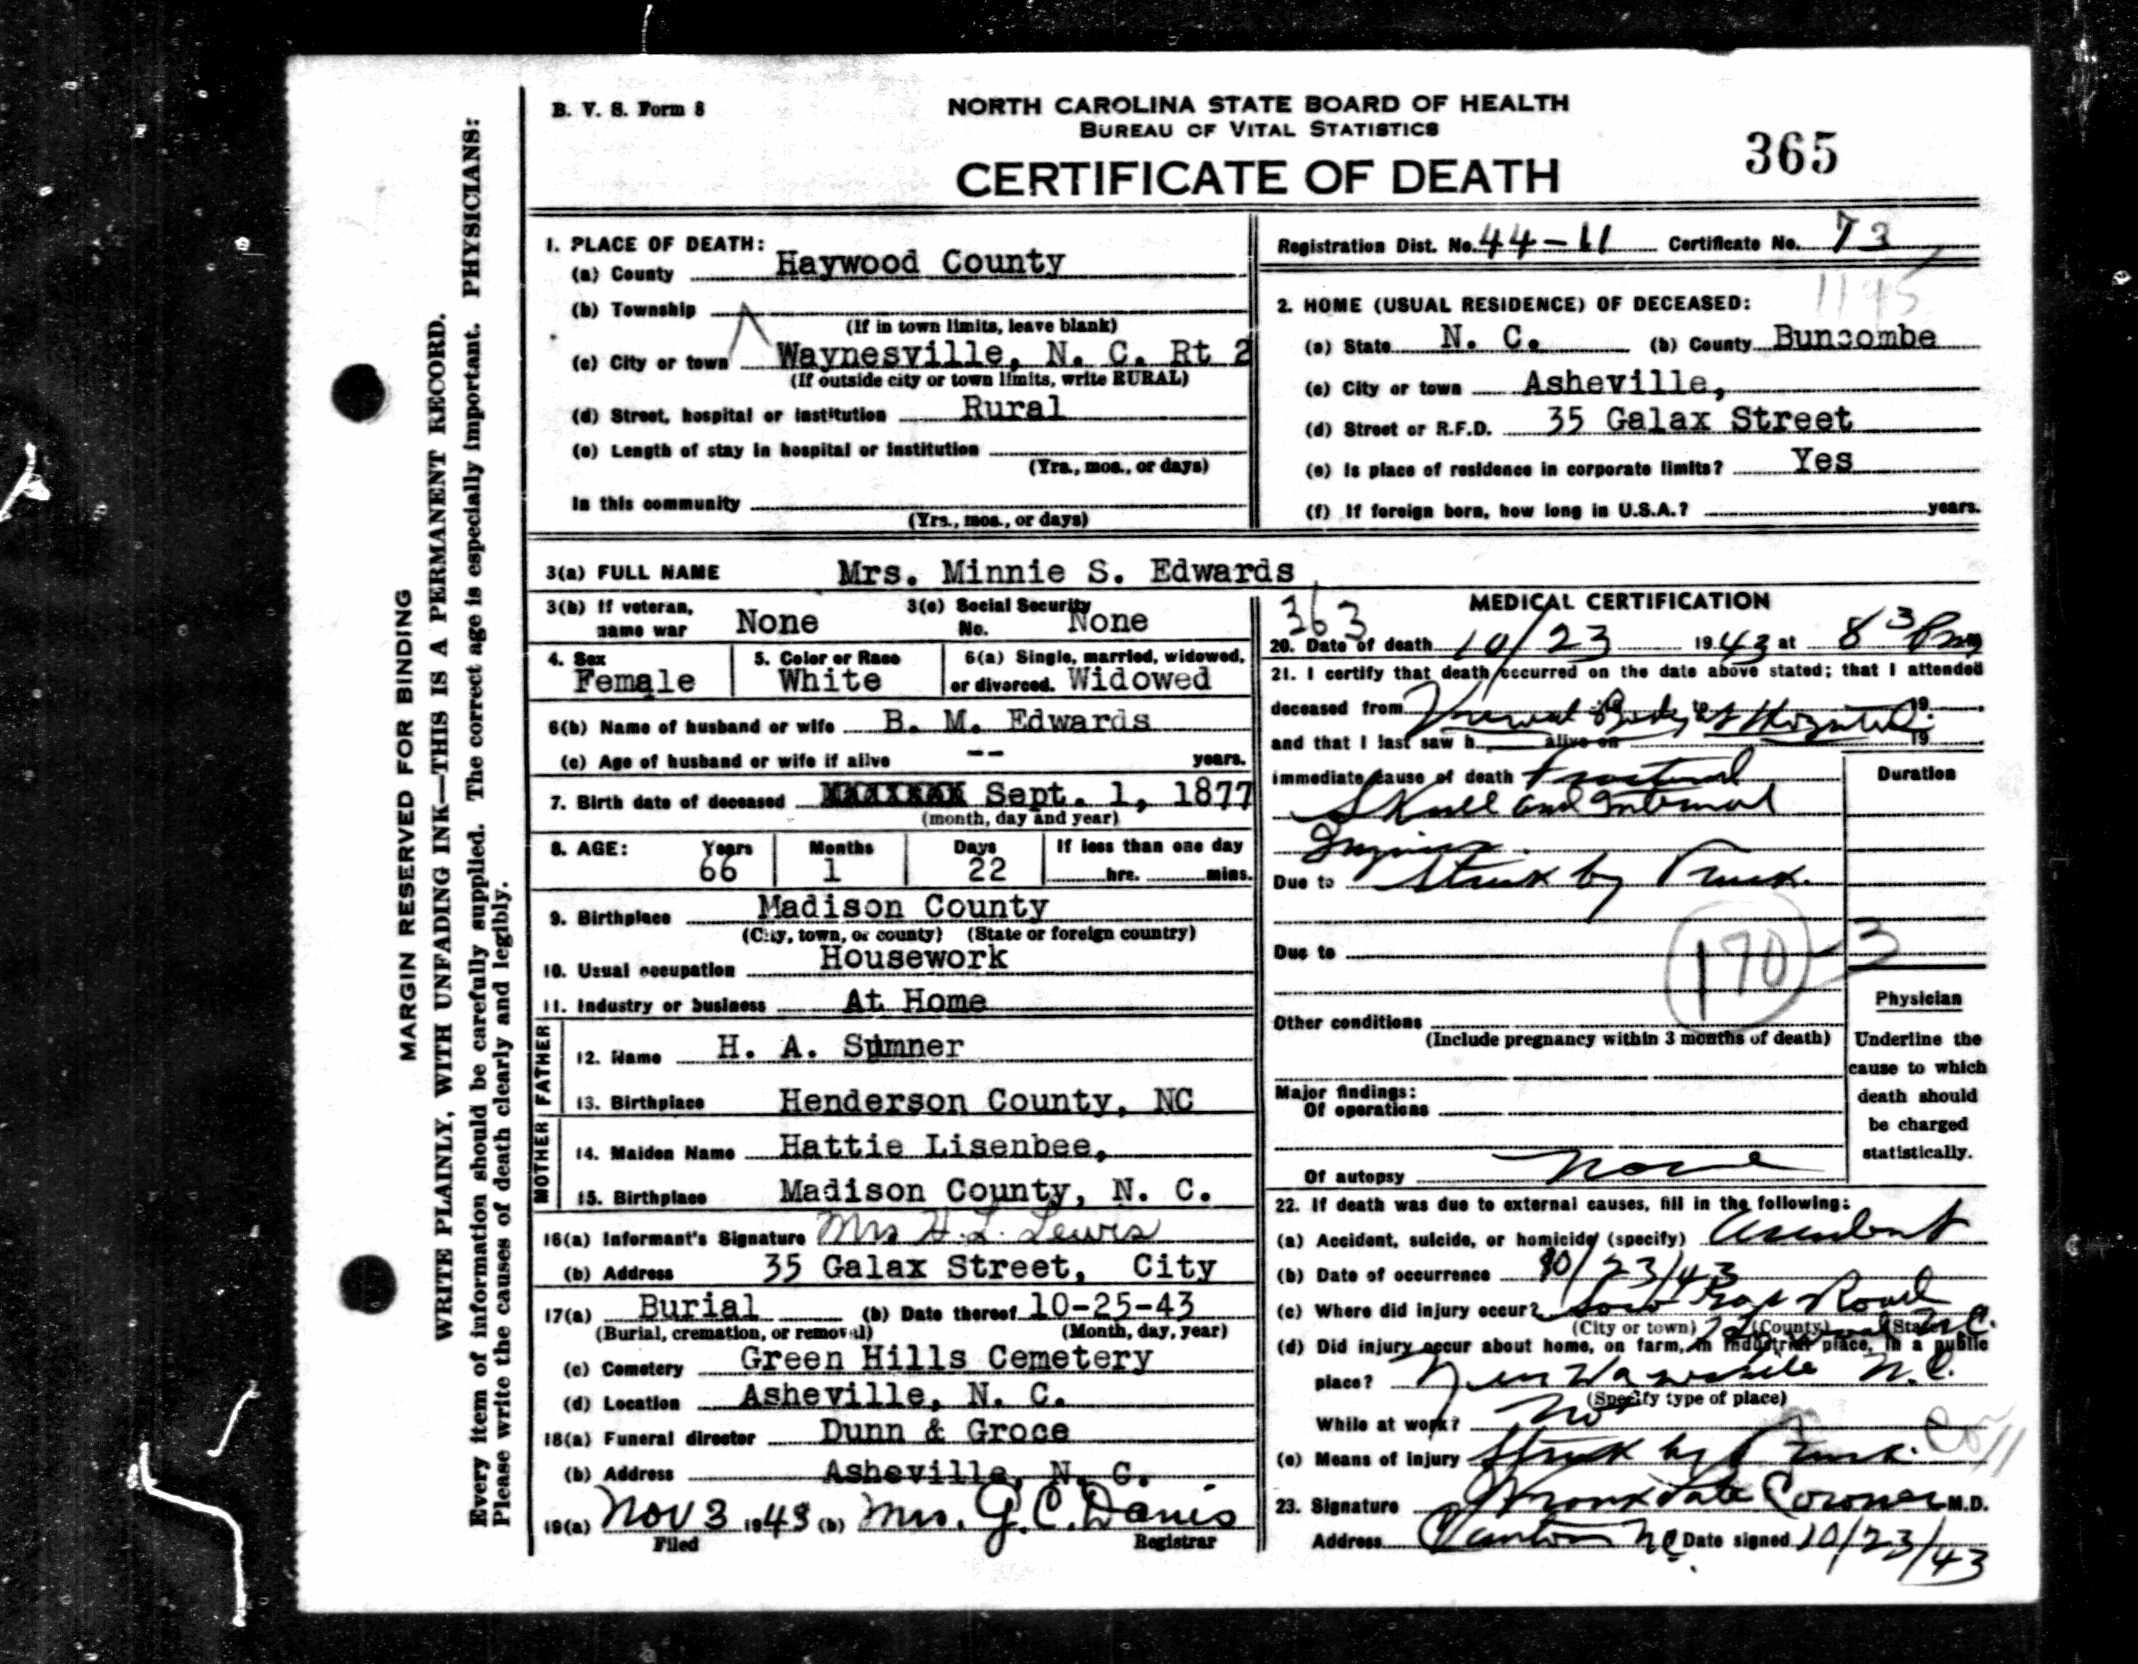 B. V. S. Form 8
NORTH CAROLINA STATE BOARD OF HEALTH
BUREAU OF VITAL STATISTICS
CERTIFICATE OF DEATH
365
MARGIN RESERVED FOR BINDING
WRITE PLAINLY, WITH UNFADING INK—THIS IS A PERMANENT RECORD.
Every item of information should be carefully supplied. The correct age is especially important. PHYSICIANS:
Please write the causes of death clearly and legibly.
1. PLACE OF DEATH:
(a) County Haywood County
(b) Township
(If in town limits, leave blank)
(c) City or town Waynesville, N. C. Rt 2
(If outside city or town limits, write RURAL)
(d) Street, hospital or institution Rural
(e) Length of stay in hospital or institution
(Yrs., mos., or days)
In this community
(Yrs., mos., or days)
Registration Dist. No. 44-11 Certificate No. 73
1145
2. HOME (USUAL RESIDENCE) OF DECEASED:
(a) State N. C. (b) County Buncombe
(c) City or town Asheville,
(d) Street or R.F.D. 35 Galax Street
(e) Is place of residence in corporate limits? Yes
(f) If foreign born, how long in U.S.A.? years.
3(a) FULL NAME Mrs. Minnie S. Edwards
3(b) If veteran, name war None 3(c) Social Security No. None
4. Sex Female 5. Color or Race White 6(a) Single, married, widowed, or divorced. Widowed
6(b) Name of husband or wife B. M. Edwards
(c) Age of husband or wife if alive -- years.
7. Birth date of deceased Sept. 1, 1877
(month, day and year)
8. AGE: Years 66 Months 1 Days 22 If less than one day hrs. mins.
9. Birthplace Madison County
(City, town, or county) (State or foreign country)
10. Usual occupation Housework
11. Industry or business At Home
FATHER
12. Name H. A. Sumner
13. Birthplace Henderson County, NC
MOTHER
14. Maiden Name Hattie Lisenbee,
15. Birthplace Madison County, N. C.
16(a) Informant's Signature Mrs H. L. Lewis
(b) Address 35 Galax Street, City
17(a) Burial (b) Date thereof 10-25-43
(Burial, cremation, or removal) (Month, day, year)
(c) Cemetery Green Hills Cemetery
(d) Location Asheville, N. C.
18(a) Funeral director Dunn & Groce
(b) Address Asheville, N. C.
19(a) Nov 3 1943 (b) Mrs. G. C. Davis
Filed Registrar
363
MEDICAL CERTIFICATION
20. Date of death 10/23 1943 at 8 3 Pm
21. I certify that death occurred on the date above stated; that I attended
deceased from Viewed Body at Hospital 19
and that I last saw h alive on 19
Immediate cause of death Fractured
Skull and Internal
Injuries
Due to Struck by Truck.
Due to
170-3
Duration
Other conditions
(Include pregnancy within 3 months of death)
Major findings:
Of operations
Of autopsy None
Physician
Underline the
cause to which
death should
be charged
statistically.
22. If death was due to external causes, fill in the following:
(a) Accident, suicide, or homicide (specify) Accident
(b) Date of occurrence 10/23/43
(c) Where did injury occur? Soco Gap Road
(City or town) (County) (State) Haywood N.C.
(d) Did injury occur about home, on farm, in industrial place, in a public
place? Near Waynesville N.C.
(Specify type of place)
While at work? No
(e) Means of injury Struck by Truck. Co 11
23. Signature Coroner M.D.
Address Canton NC Date signed 10/23/43